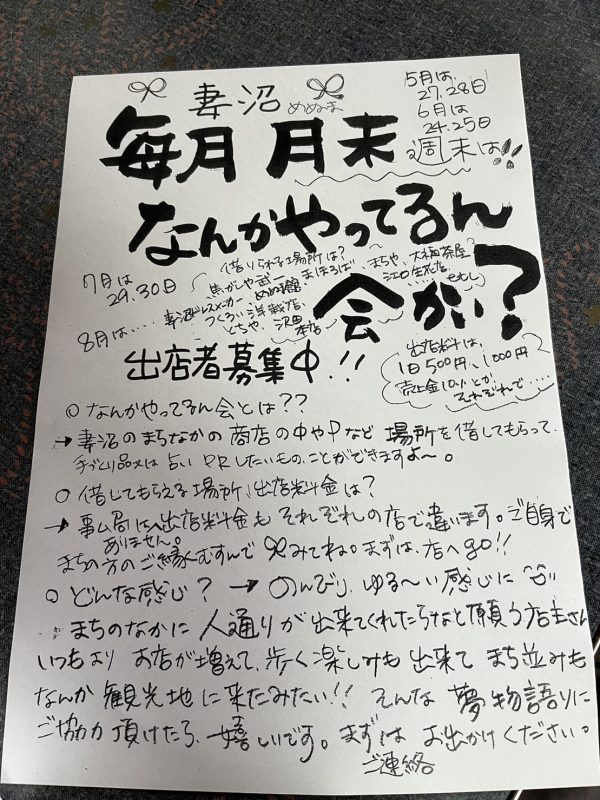 妻沼 めぬま
5月は、
27.28日
6月は
24.25日
週末は!!
毎月 月末
なんかやってるん
会かい?
7月は
29.30日
8月は‥‥
借りられる場所は?
まほろば
まちや、大福茶屋
江口生花店
めぬま館
妻沼ドレスメーカー
つくろい洋裁店
とちや、沢田本店
出店者募集中!!
出店料は、
1日500円、1000円
売上金10%とか
それぞれで‥‥
○なんかやってるん会とは??
→妻沼のまちなかの商店の中やPなど場所を借してもらって
手づくり品又は占いPRしたいもの、ことができますよ〜。
○借してもらえる場所、出店料金は?
→事ム局はありません。出店料金もそれぞれの店で違います。ご自身で
まちの方のご縁むすんでみてね。まずは、店へGO!!
○どんな感じ?→のんびり、ゆる〜い感じに
まちのなかに人通りが出来てくれたらなと願う店主さん
いつもよりお店が増えて、歩く楽しみも出来てまち並みも
なんか観光地に来たみたい!!そんな夢物語りに
ご協力頂けたら、嬉しいです。まずはお出かけください。
ご連絡